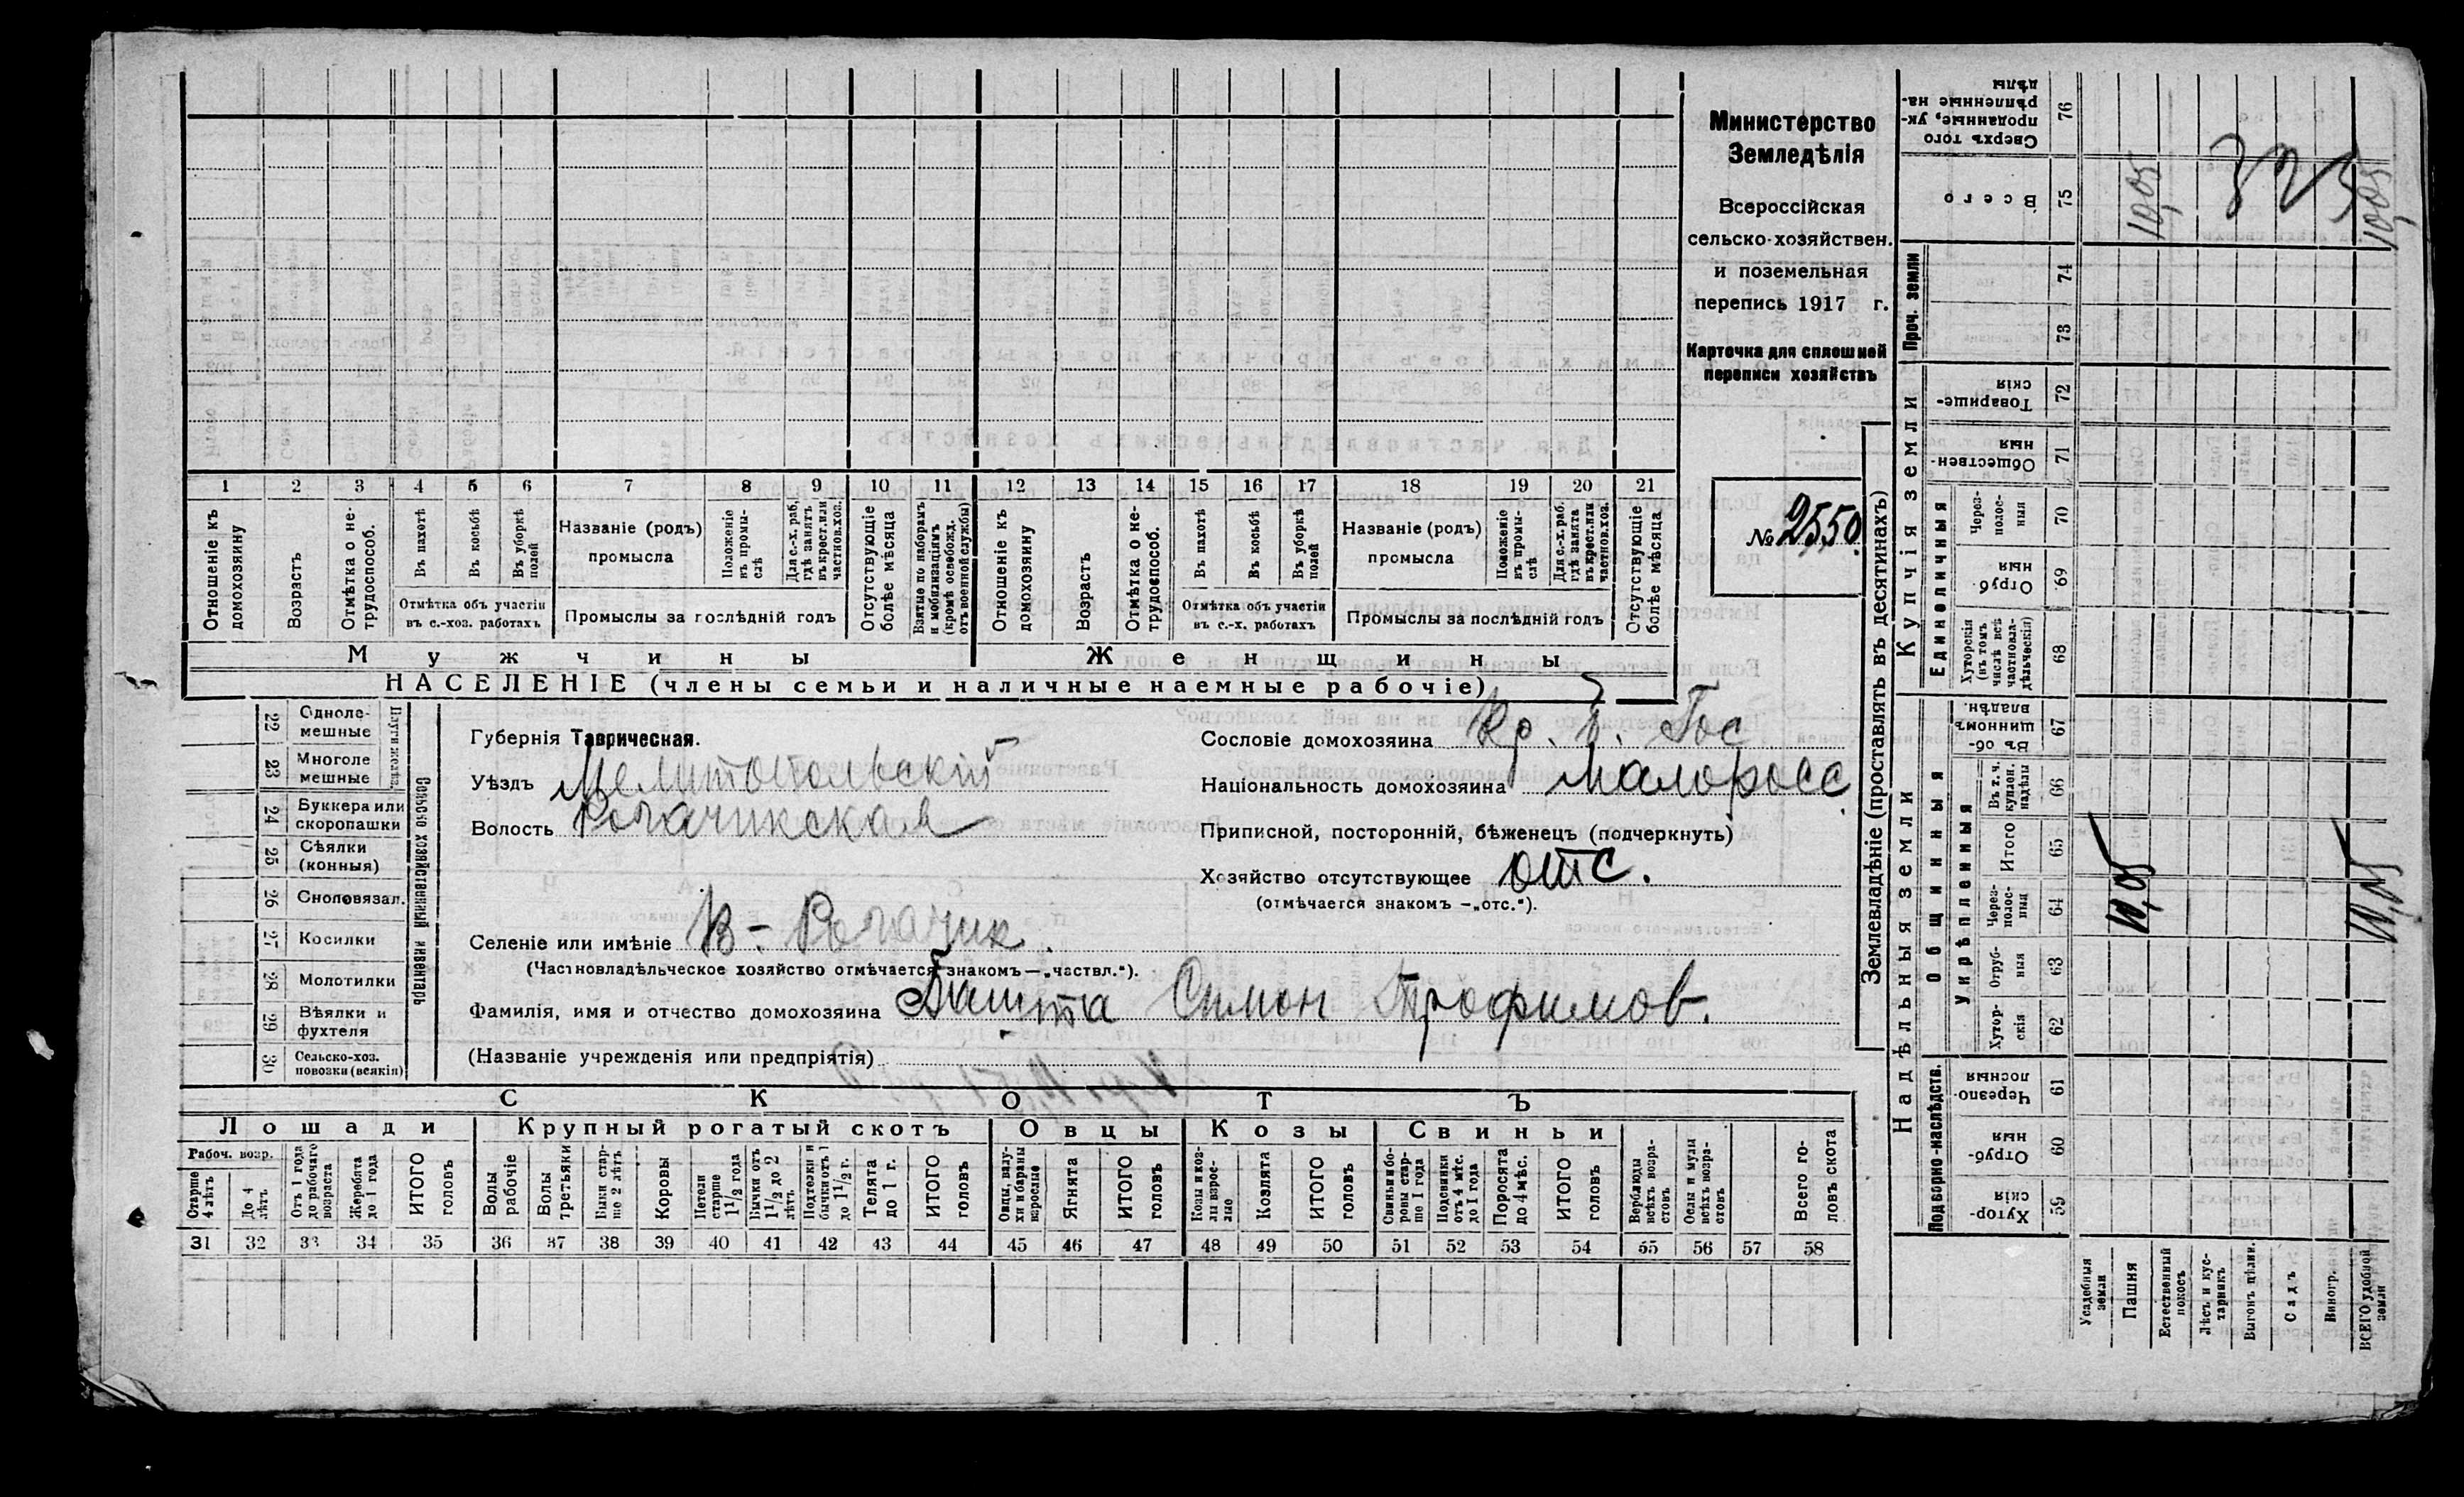 Министерство
Земледѣлія
Всероссійская
сельско-хозяйствен.
и поземельная
перепись 1917 г.
Карточка для сплошной
переписи хозяйствъ
№ 2550
1 2 3 4 5 6 7 8 9 10 11 12 13 14 15 16 17 18 19 20 21
Отношеніе къ домохозяину
Возрастъ
Отмѣтка о не-трудоспособ.
Въ пахотѣ
Въ косьбѣ
Въ уборкѣ полей
Отмѣтка объ участіи въ с.-хоз. работахъ
Названіе (родъ) промысла
Положеніе въ промы-слѣ
Для с.-х. раб. гдѣ занятъ въ крест. или частнов. хоз.
Промыслы за послѣдній годъ
Отсутствующіе болѣе мѣсяца
Взятые по наборамъ и мобилизаціямъ (кромѣ освобожд. отъ военной службы)
Отношеніе къ домохозяину
Возрастъ
Отмѣтка о не-трудоспособ.
Въ пахотѣ
Въ косьбѣ
Въ уборкѣ полей
Отмѣтка объ участіи въ с.-х. работахъ
Названіе (родъ) промысла
Положеніе въ промы-слѣ
Для с.-х. раб. гдѣ занята въ крест. или частнов. хоз.
Промыслы за послѣдній годъ
Отсутствующіе болѣе мѣсяца
Мужчины Женщины
НАСЕЛЕНІЕ (члены семьи и наличные наемные рабочіе)
22 Одноле-мешные
23 Многоле мешные
24 Буккера или скоропашки
25 Сѣялки (конныя)
26 Сноповязал.
27 Косилки
28 Молотилки
29 Вѣялки и фухтеля
30 Сельско-хоз. повозки (всякія)
Сельско хозяйственный инвентарь
Губернія Таврическая.
Уѣздъ Мелитопольскій
Волость Рогачикская
Селеніе или имѣніе В-Рогачик.
(Частновладѣльческое хозяйство отмѣчается знакомъ—„частвл.“).
Фамилія, имя и отчество домохозяина Башта Симон Трофимов.
(Названіе учрежденія или предпріятія)
Сословіе домохозяина Кр. б. Гос
Національность домохозяина малоросс
Приписной, посторонній, бѣженецъ (подчеркнуть)
Хозяйство отсутствующее отс.
(отмѣчается знакомъ —„отс.“).
СКОТЪ
Лошади Крупный рогатый скотъ Овцы Козы Свиньи
Рабоч. возр.
Старше 4 лѣтъ
До 4 лѣтъ
Отъ 1 года до рабочаго возраста
Жеребята до 1 года
ИТОГО головъ
Волы рабочіе
Волы третьяки
Быки стар-ше 2 лѣтъ
Коровы
Нетели старше 1 1/2 года
Бычки отъ 1 1/2 до 2 лѣтъ
Подтелки и бычки отъ 1 до 1 1/2 г.
Телята до 1 г.
ИТОГО головъ
Овцы, валу-хи и бараны взрослые
Ягнята
ИТОГО головъ
Козы и коз-лы взрос-лые
Козлята
ИТОГО головъ
Свиньи и бо-ровы стар-ше 1 года
Подсвинки отъ 4 мѣс. до 1 года
Поросята до 4 мѣс.
ИТОГО головъ
Верблюды всѣхъ возра-стовъ
Ослы и мулы всѣхъ возра-стовъ
Всего го-ловъ скота
31 32 33 34 35 36 37 38 39 40 41 42 43 44 45 46 47 48 49 50 51 52 53 54 55 56 57 58
Землевладѣніе (проставлять въ десятинахъ)
Надѣльныя земли
Купчія земли
Проч. земли
Подворно-наслѣдств.
Общинныя
Укрѣпленныя
Единоличныя
Хутор-скія 59
Отруб-ныя 60
Черезпо-лосныя 61
Хутор-скія 62
Отруб-ныя 63
Через-полос-ныя 64
Итого 65
Въ т. ч. куплен. надѣлы 66
Въ об-щинномъ владѣн. 67
Хуторскія (въ томъ числѣ всѣ частновла-дѣльческія) 68
Отруб-ныя 69
Через-полос-ныя 70
Обществен-ныя 71
Товарище-скія 72
73
74
Всего 75
Сверхъ того проданные, ук-рѣпленные на-дѣлы 76
Усадебныя земли
Пашня
Естественный покосъ
Лѣсъ и кус-тарникъ
Выгонъ цѣлин.
Садъ
Виногр.
ВСЕГО удобной земли
10,05
10,05
10,05
10,05
323